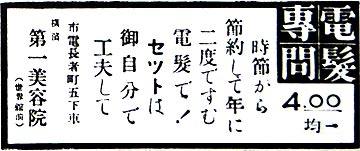 電髪
專問
4.00
均一
時節から
節約して年に
二度ですむ
電髪で!
セットは
御自分で
工夫して
市電長者町五下車
横濱
第一美容院